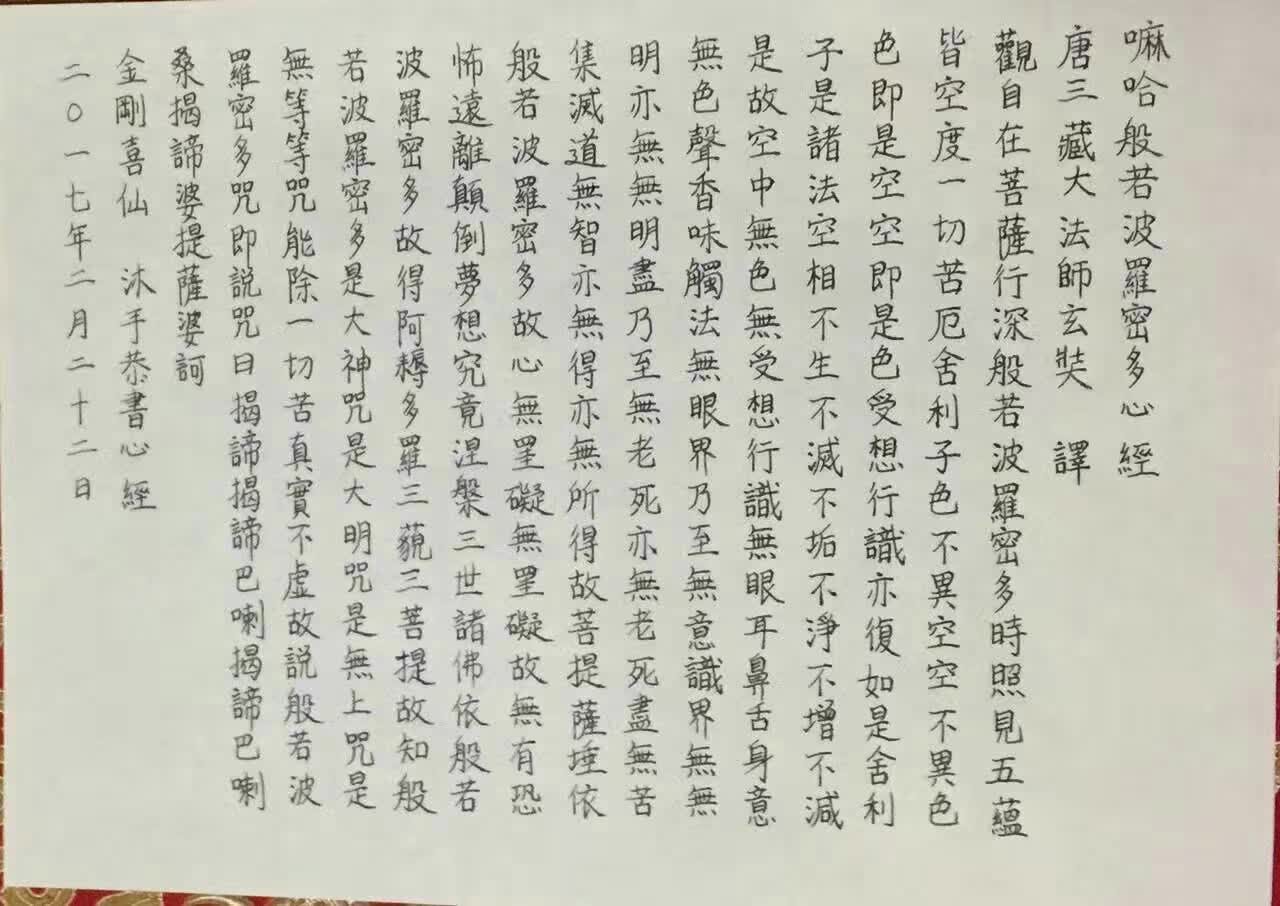 嘛哈般若波羅密多心經
唐三藏大法師玄奘 譯
觀自在菩薩行深般若波羅密多時照見五蘊
皆空度一切苦厄舍利子色不異空空不異色
色即是空空即是色受想行識亦復如是舍利
子是諸法空相不生不滅不垢不淨不增不減
是故空中無色無受想行識無眼耳鼻舌身意
無色聲香味觸法無眼界乃至無意識界無無
明亦無無明盡乃至無老死亦無老死盡無苦
集滅道無智亦無得亦無所得故菩提薩埵依
般若波羅密多故心無罣礙無罣礙故無有恐
怖遠離顛倒夢想究竟涅槃三世諸佛依般若
波羅密多故得阿耨多羅三藐三菩提故知般
若波羅密多是大神咒是大明咒是無上咒是
無等等咒能除一切苦真實不虛故説般若波
羅密多咒即説咒曰揭諦揭諦巴喇揭諦巴喇
桑揭諦婆提薩婆訶
金剛喜仙 沐手恭書心經
二〇一七年二月二十二日